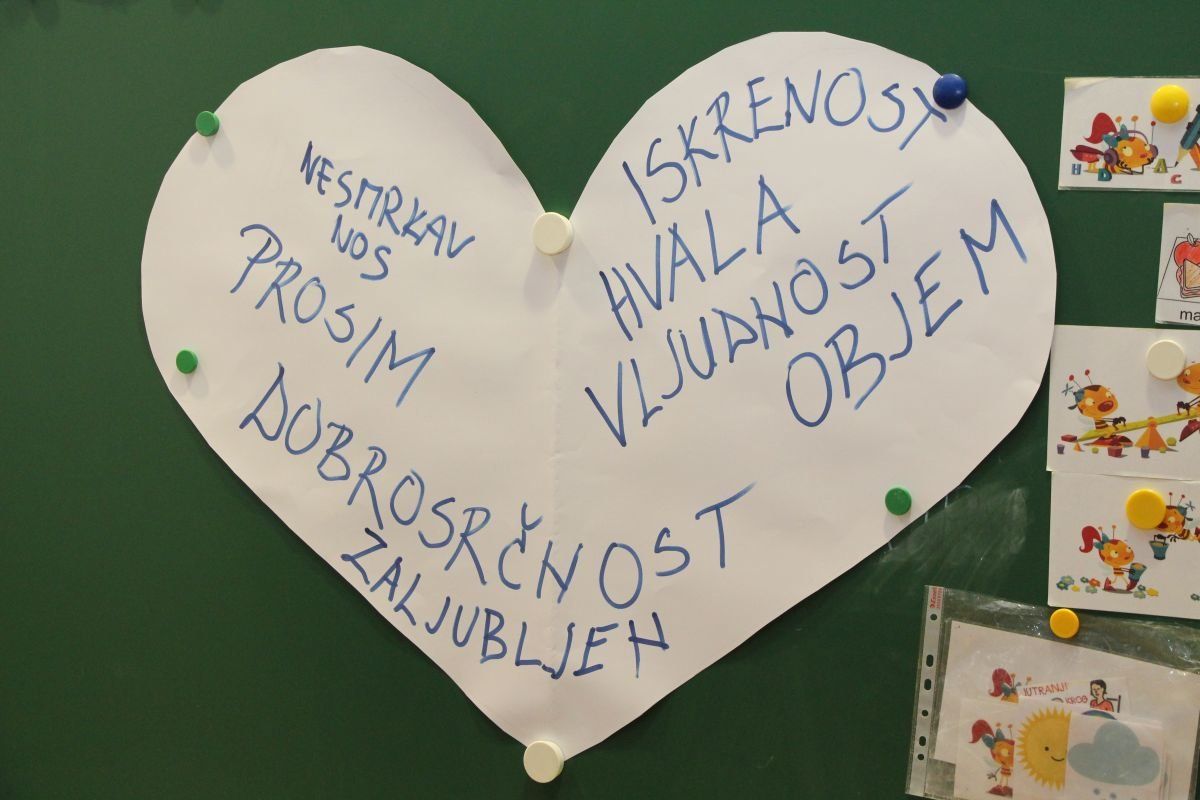 NESMRKAV
NOS
PROSIM
ISKRENOST
HVALA
VLJUDNOST
OBJEM
DOBROSRČNOST
ZALJUBLJEN
H D A C
ma
JUTRANJI
KROG